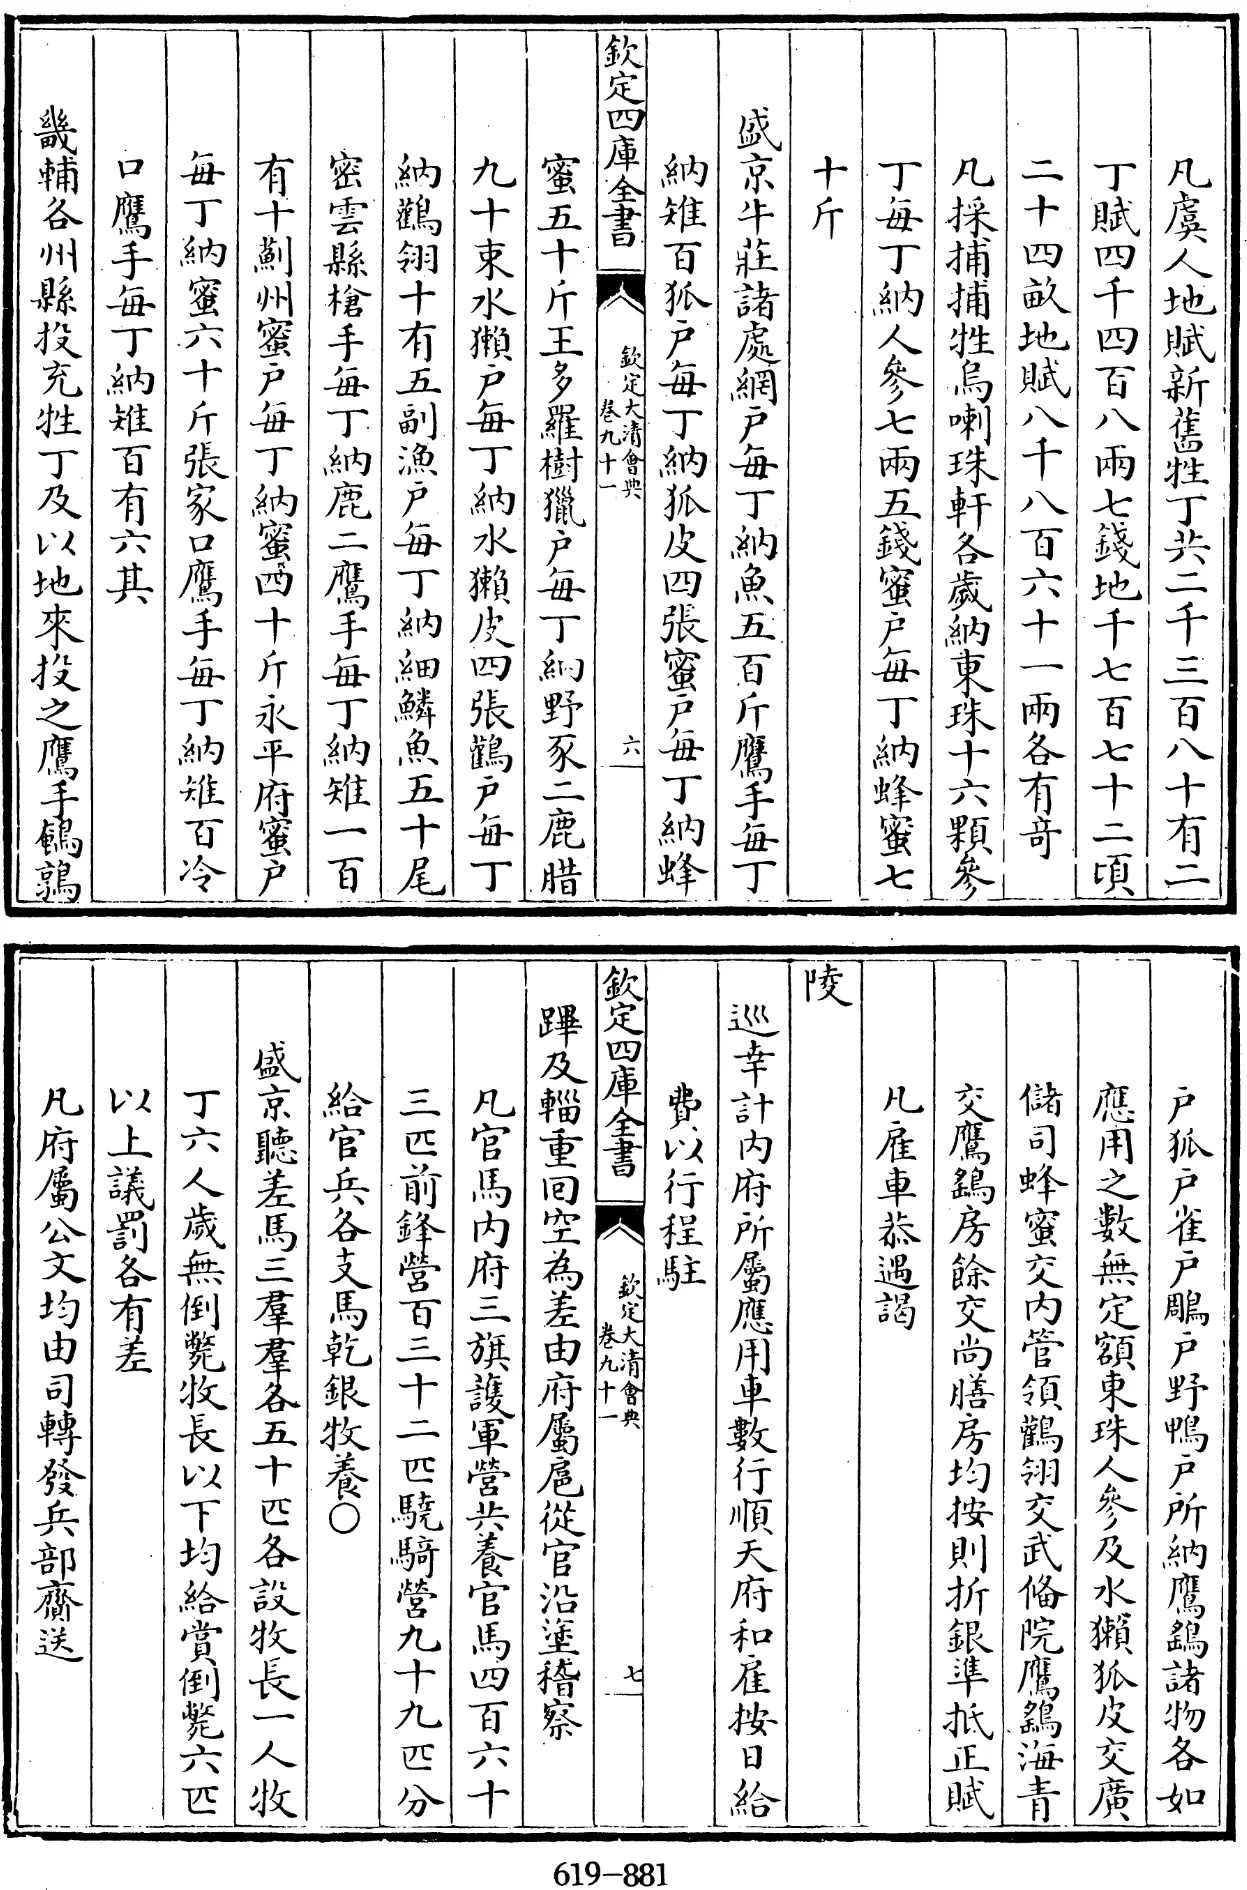 凡虞人地賦新舊牲丁共二千三百八十有二
丁賦四千四百八兩七錢地千七百七十二頃
二十四畝地賦八千八百六十一兩各有奇
凡採捕捕牲烏喇珠軒各歲納東珠十六顆參
丁每丁納人參七兩五錢蜜戶每丁納蜂蜜七
十斤
盛京牛莊諸處網戶每丁納魚五百斤鷹手每丁
納雉百狐戶每丁納狐皮四張蜜戶每丁納蜂
欽定四庫全書
欽定大清會典
卷九十一
六
蜜五十斤王多羅樹獵戶每丁納野豕二鹿腊
九十束水獺戶每丁納水獺皮四張鸛戶每丁
納鸛翎十有五副漁戶每丁納細鱗魚五十尾
密雲縣槍手每丁納鹿二鷹手每丁納雉一百
有十薊州蜜戶每丁納蜜四十斤永平府蜜戶
每丁納蜜六十斤張家口鷹手每丁納雉百冷
口鷹手每丁納雉百有六其
畿輔各州縣投充牲丁及以地來投之鷹手鵪鶉
戶狐戶雀戶鵰戶野鴨戶所納鷹鷂諸物各如
應用之數無定額東珠人參及水獺狐皮交廣
儲司蜂蜜交內管領鸛翎交武備院鷹鷂海青
交鷹鷂房餘交尚膳房均按則折銀準抵正賦
凡雇車恭遇謁
陵
巡幸計內府所屬應用車數行順天府和雇按日給
費以行程駐
欽定四庫全書
欽定大清會典
卷九十一
七
蹕及輜重回空為差由府屬扈從官沿塗稽察
凡官馬內府三旗護軍營共養官馬四百六十
三匹前鋒營百三十二匹驍騎營九十九匹分
給官兵各支馬乾銀牧養○
盛京聽差馬三羣羣各五十匹各設牧長一人牧
丁六人歲無倒斃牧長以下均給賞倒斃六匹
以上議罰各有差
凡府屬公文均由司轉發兵部齎送
619-881